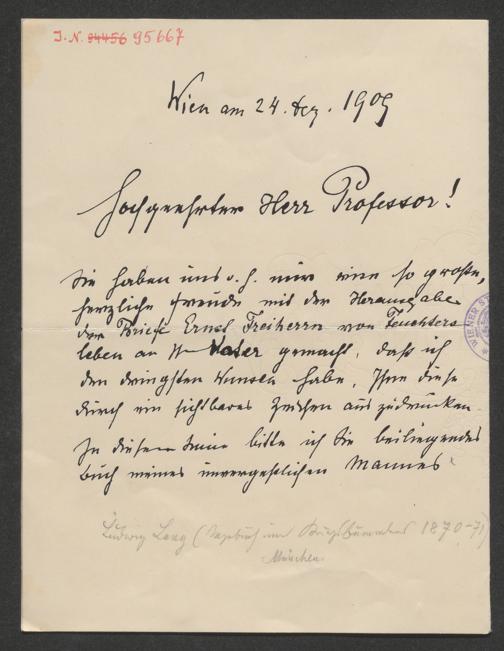 J. N. 94456 95667
Wien am 24. Dez. 1909
Hochgeehrter Herr Professor!
Sie haben uns v. h. mir eine so große,
herzliche Freude mit der Herausgabe
der Briefe Ernst Freiherrn von Feuchters
leben an Vater gemacht, daß ich
den dringsten Wunsch habe, Ihnen diese
durch ein sichtbares Zeichen auszudrücken
In diesem Sinne bitte ich Sie beiliegendes
Buch meines unvergeßlichen Mannes
Ludwig (Tagebuch 1870-71)
München
WIENER ST